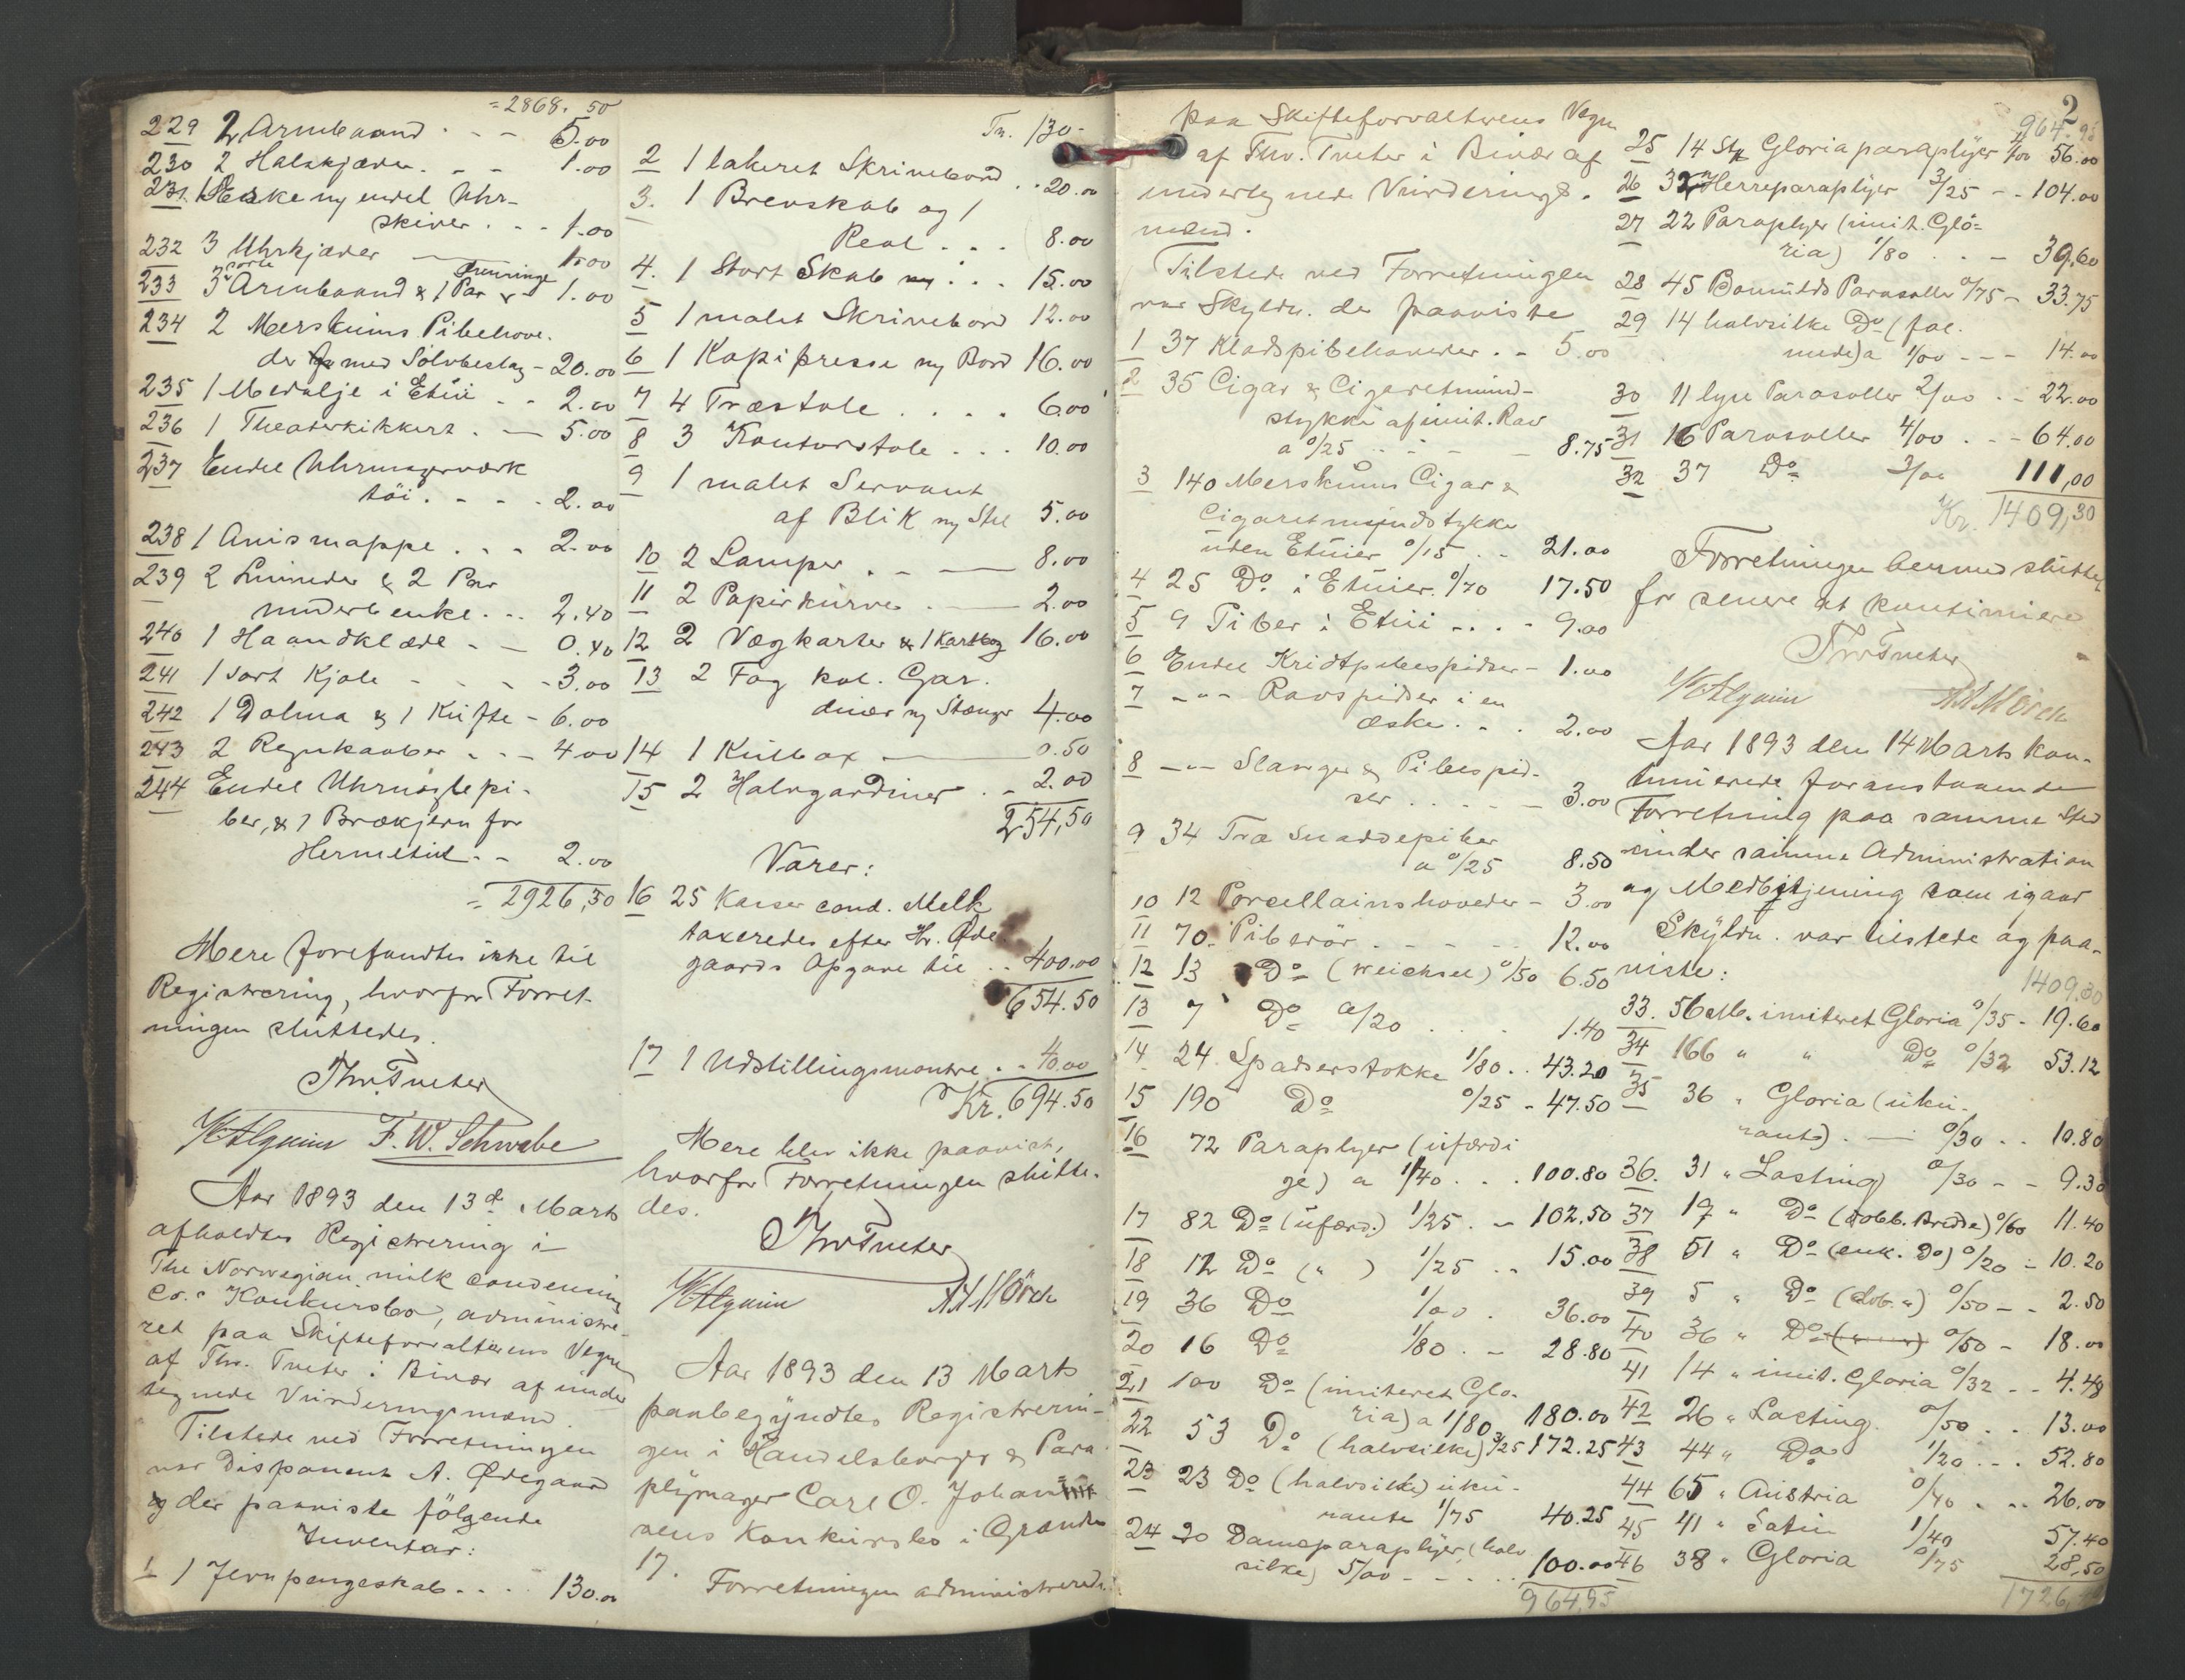 =2868. 50
229 2 Armbaand . - - 5.00
230 2 Halskjæder. - - 1.00
231 1 Æske mg endel Uhr-
skiver . . - 1.00
232 3 Uhrkjæder — 1.00
233 3 sorte Armbaand & 1 Par Øreringe - 1.00
234 2 Merskums Pibehove-
der med Sølvbeslag - 20.00
235 1 Medalje i Etui - - 2.00
236 1 Theaterkikkert . — 5.00
237 Endel Uhrmagerværk
töi . - - - 2.00
238 1 Avismappe . . - 2.00
239 2 Linneder & 2 Par
underbenke . - . 2.40
240 1 Haandklæde - — 0.40
241 1 sort Kjole - - - - 3.00
242 1 Dolma & 1 Kufte - 6.00
243 2 Regnkaaber . - - 4.00
244 Endel Uhrnøglepi-
ber, & 1 Brækjern for
Hermetik - - 2.00
= 2926,30
Mere forefandtes ikke til
Registrering, hvorfor Forret-
ningen sluttedes.
Thv. Tveter
F. W. Schwabe
Aar 1893 den 13de Marts
afholdtes Registrering i
The Norwegian milk condensing
Co.s Konkursbo, administre-
ret paa Skifteforvalterens Vegne
af Thv. Tveter i Bivær af under
tegnede Vurderingsmænd.
Tilstede ved Forretningen
var Disponent A. Ødegaard
og der paaviste følgende
Inventar:
1 1 Jernpengeskab - . . 130.00
Tr. 130-
2 1 lakeret Skrivebord . . 20.00
3. 1 Brevskab og 1
Reol . . . 8.00
4. 1 Stort Skab . . . 15.00
5 1 malet Skrivebord 12.00
6 1 Kopipresse mg Bord 16.00
7 4 Træstole . . . . 6.00
8 3 Kontorstole . . . 10.00
9 1 malet Servant
af Blik mg Stel 5.00
10 2 Lamper . - — 8.00
11 2 Papirkurve . — 2.00
12 2 Vægkarter & 1 Kartbog 16.00
13 2 Fag kol. Gar-
diner mg Stænger 4.00
14 1 Kulbox — 0.50
15 2 Halvgardiner . - 2.00
254,50
Varer:
16 25 Kasser cond. Melk
taxeredes efter Hr. Øde-
gaards Opgave til . . 400.00
654.50
17 1 Udstillingsmontre . - 40.00
Kr. 694.50
Mere blev ikke paavist,
hvorfor Forretningen slutte-
des.
Thv. Tveter
A. A. Mörch
Aar 1893 den 13 Marts
paabegyndtes Registrerin-
gen i Handelsborger & Para-
plymager Carl O. Johan-
sens Konkursbo i Grændsen
17.
Forretningen administreredes
2
paa Skifteforvalterens Vegne
af Thv. Tveter i Bivær af
undertegnede Vurderings-
mænd.
Tilstede ved Forretningen
var Skyldn. der paaviste
1 37 Kladspibehoveder . - 5.00
2 35 Cigar & Cigaretmund-
stykker af imit. Rav
a 0/25 . . - - - 8.75
3 140 Merskums Cigar &
Cigaretmundstykker
uden Etuier 0/15 . - 21.00
4 25 Do i Etuier 0/70 17.50
5 9 Piber i Etui - . . - 9.00
6 Endel Kridtpibespidser - 1.00
7 - " - Ravspidser i en
æske . - . 2.00
8 - " - Slanger & Pibespid-
ser . . - - - 3.00
9 34 Træ Snaddepiber
a 0/25 8.50
10 12 Porcellainshoveder - 3.00
11 70. Piberör . - - - - 12.00
12 13 Do (Weichsel) 0/50 6.50
13 7 Do 0/20 . . . 1.40
14 24. Spadserstokke 1/80 . . 43.20
15 190 Do 0/25 - 47.50
16 72 Paraplyer (ufærdi
ge) a 1/40 . . . 100.80
17 82 Do (ufærd.) 1/25 . - 102.50
18 12 Do ( " ) 1/25 . - 15.00
19 36 Do 1/00 . 36.00
20 16 Do 1/80 . - 28.80
21 100 Do (imiteret Glo-
ria) a 1/80 180.00
22 53 Do (halvsilke) 3/25 172.25
23 23 Do (halvsilke) uku-
rante 1/75 40.25
24 20 Dameparaplyer (halv
silke) 5/00 - - - . . 100.00
964.95
964.95
25 14 Stk Gloriaparaplyer 4/00 56.00
26 32 Herreparaplyer 3/25 - - 104.00
27 22 Paraplyer (imit. Glo-
ria) 1/80 . . - 39.60
28 45 Bomulds Parasoller 0/75 - 33.75
29 14 halvsilke Do (fal.
mede) a 1/00 - - - 14.00
30 11 lyse Parasoller 2/00 . - 22.00
31 16 Parasoller 4/00 . - - 64.00
32 37 Do 3/00 111,00
Kr. 1409,30
Forretningen hermed sluttet
for senere at kontinuere
Thv. Tveter
A. A. Mörch
Aar 1893 den 14 Marts kon-
tinuerede foranstaaende
Forretning paa samme Sted
under samme Administration
og Medbetjening som igaar
Skyldn. var tilstede og paa-
viste:
1409.30
33. 56 M. imiteret Gloria 0/35 - 19.60
34 166 " " Do 0/32 53.12
35 36 " Gloria (uku-
rante) . — 0/30 . . 10.80
36. 31 " Lasting 0/30 - - 9.30
37 19 " Do (dobb. Bredde) 0/60 11.40
38 51 " Do (enk. Do) 0/20 - 10.20
39 5 " Do (dob. ") 0/50 - - 2.50
40 36 " Do 0/50 - 18.00
41 14 " imit. Gloria 0/32 - - 4.48
42 26 " Lasting 0/50 . . 13.00
43 44 " Do 1/20 . . . 52.80
44 65 " Austria 0/40 . . . 26.00
45 41 " Satin 1/40 57.40
46 38 " Gloria 0/75 28,50